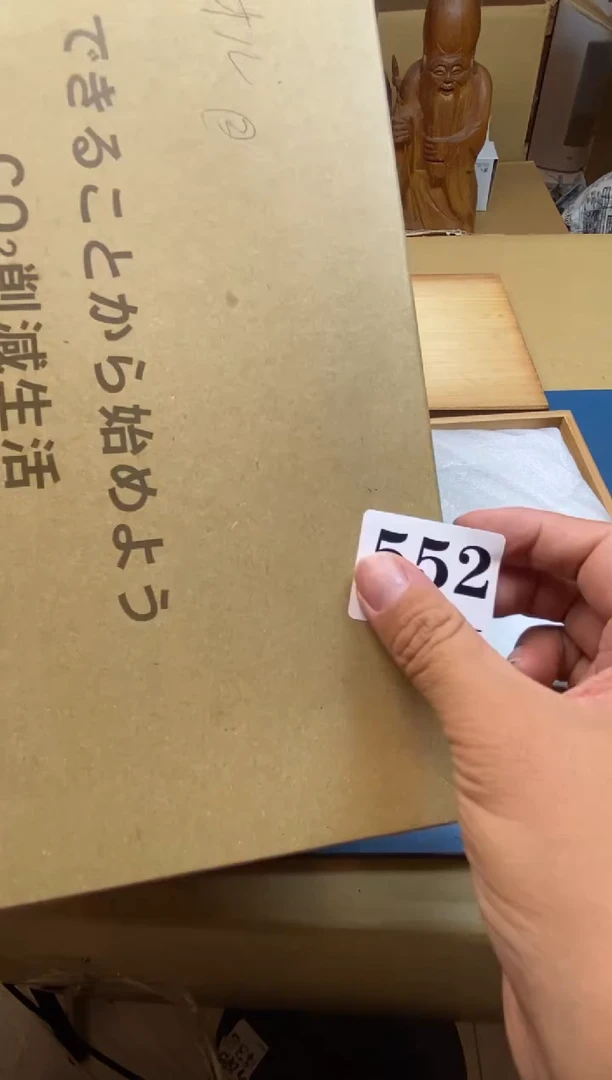 オル②
できることから始めよう
CO₂削減生活
552